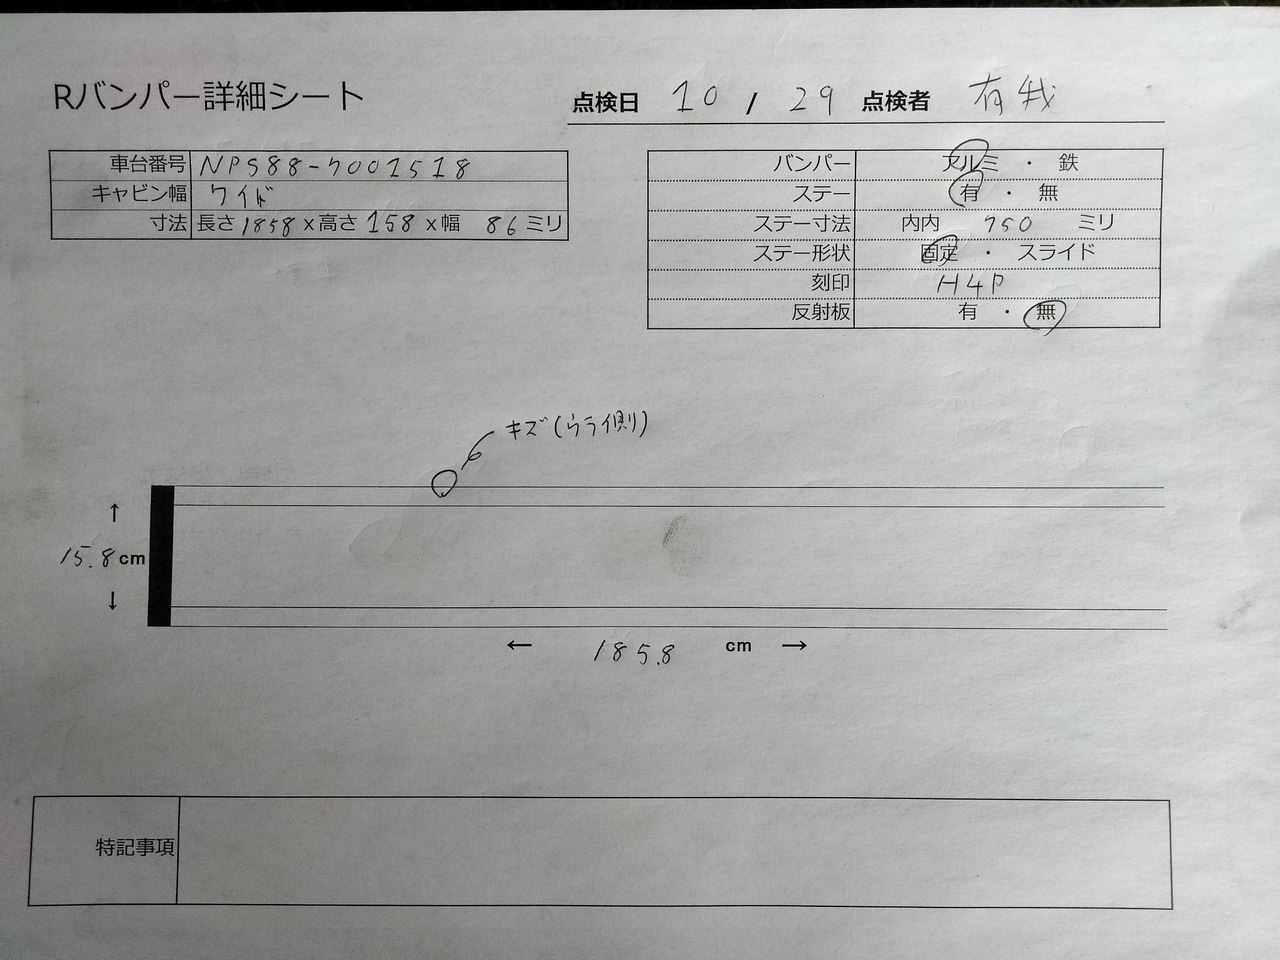 Rバンパー詳細シート
点検日 10 / 29 点検者 有我
車台番号 NPS88-7001518
キャビン幅 ワイド
寸法 長さ 1858 x 高さ 158 x 幅 86 ミリ
バンパー アルミ ・ 鉄
ステー 有 ・ 無
ステー寸法 内内 750 ミリ
ステー形状 固定 ・ スライド
刻印 H4P
反射板 有 ・ 無
キズ(ウライ側)
↑
15.8 cm
↓
← 185.8 cm →
特記事項